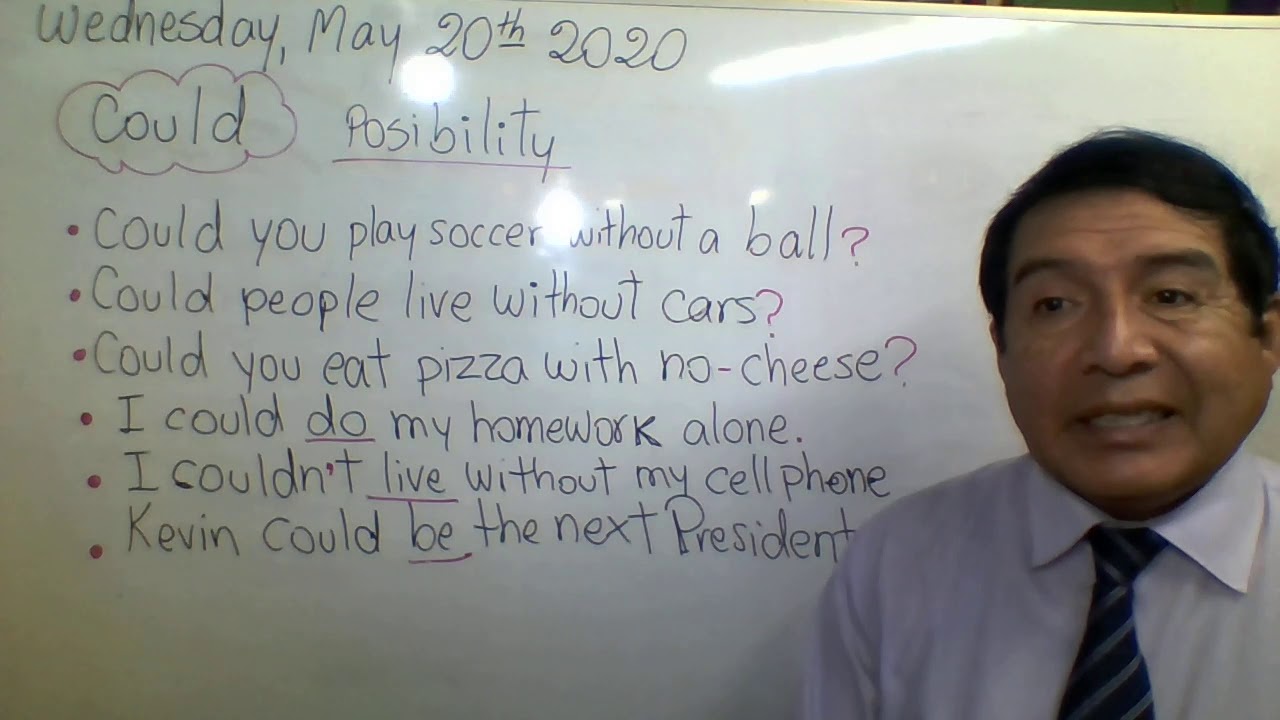 Wednesday, May 20th 2020
Could Posibility
• Could you play soccer without a ball?
• Could people live without cars?
• Could you eat pizza with no-cheese?
• I could do my homework alone.
• I couldn't live without my cellphone
• Kevin could be the next President